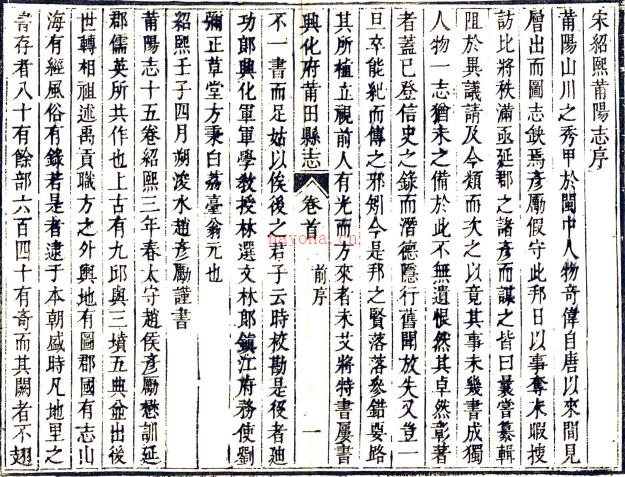 宋紹熙莆陽志序
莆陽山川之秀甲於閩中人物奇偉自唐以來間見
層出而圖志缺焉彥勵假守此邦日以事奪未暇搜
訪比將秩滿亟延郡之諸彥而謀之皆曰曩嘗纂輯
阻於異議請及今類而次之以竟其事未幾書成獨
人物一志猶未之備於此不無遺恨然其卓然彰著
者蓋已登信史之錄而潛德隱行舊聞放失又豈一
旦卒能紀而傳之邪矧今是邦之賢落落參錯要路
其所植立視前人有光而方來者未艾將特書屢書
興化府莆田縣志 卷首 前序 一
不一書而足姑以俟後之君子云時校勘是後者迪
功郎興化軍軍學教授林選文林郎鎮江府務使劉
彌正草堂方秉白荔臺翁元也
紹熙壬子四月朔浚水趙彥勵謹書
莆陽志十五卷紹熙三年春太守趙侯彥勵懋訓延
郡儒英所共作也上古有九邱與三墳五典並出後
世轉相祖述禹貢職方之外輿地有圖郡國有志山
海有經風俗有錄若是者逮于本朝盛時凡地里之
書存者八十有餘部六百四十有奇而其闕者不翅
nayona.cn